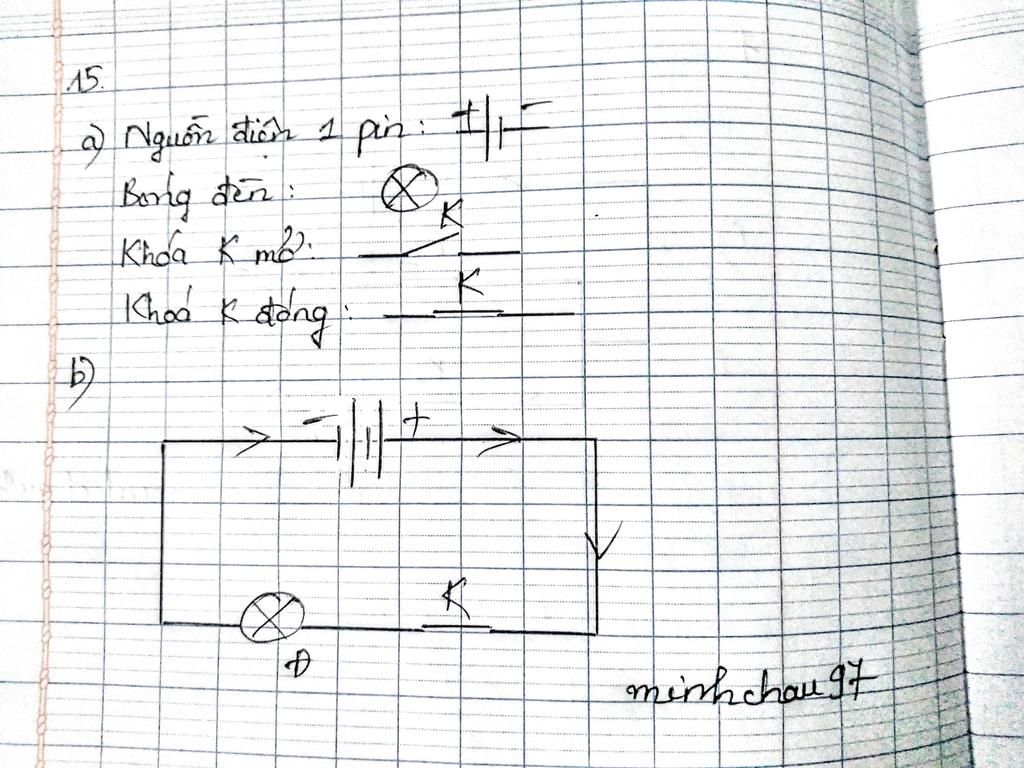 15.
a) Nguồn điện 1 pin: + -
Bóng đèn:
Khóa K mở: K
Khoá K đóng: K
b)
- +
K
Đ
minhchau97